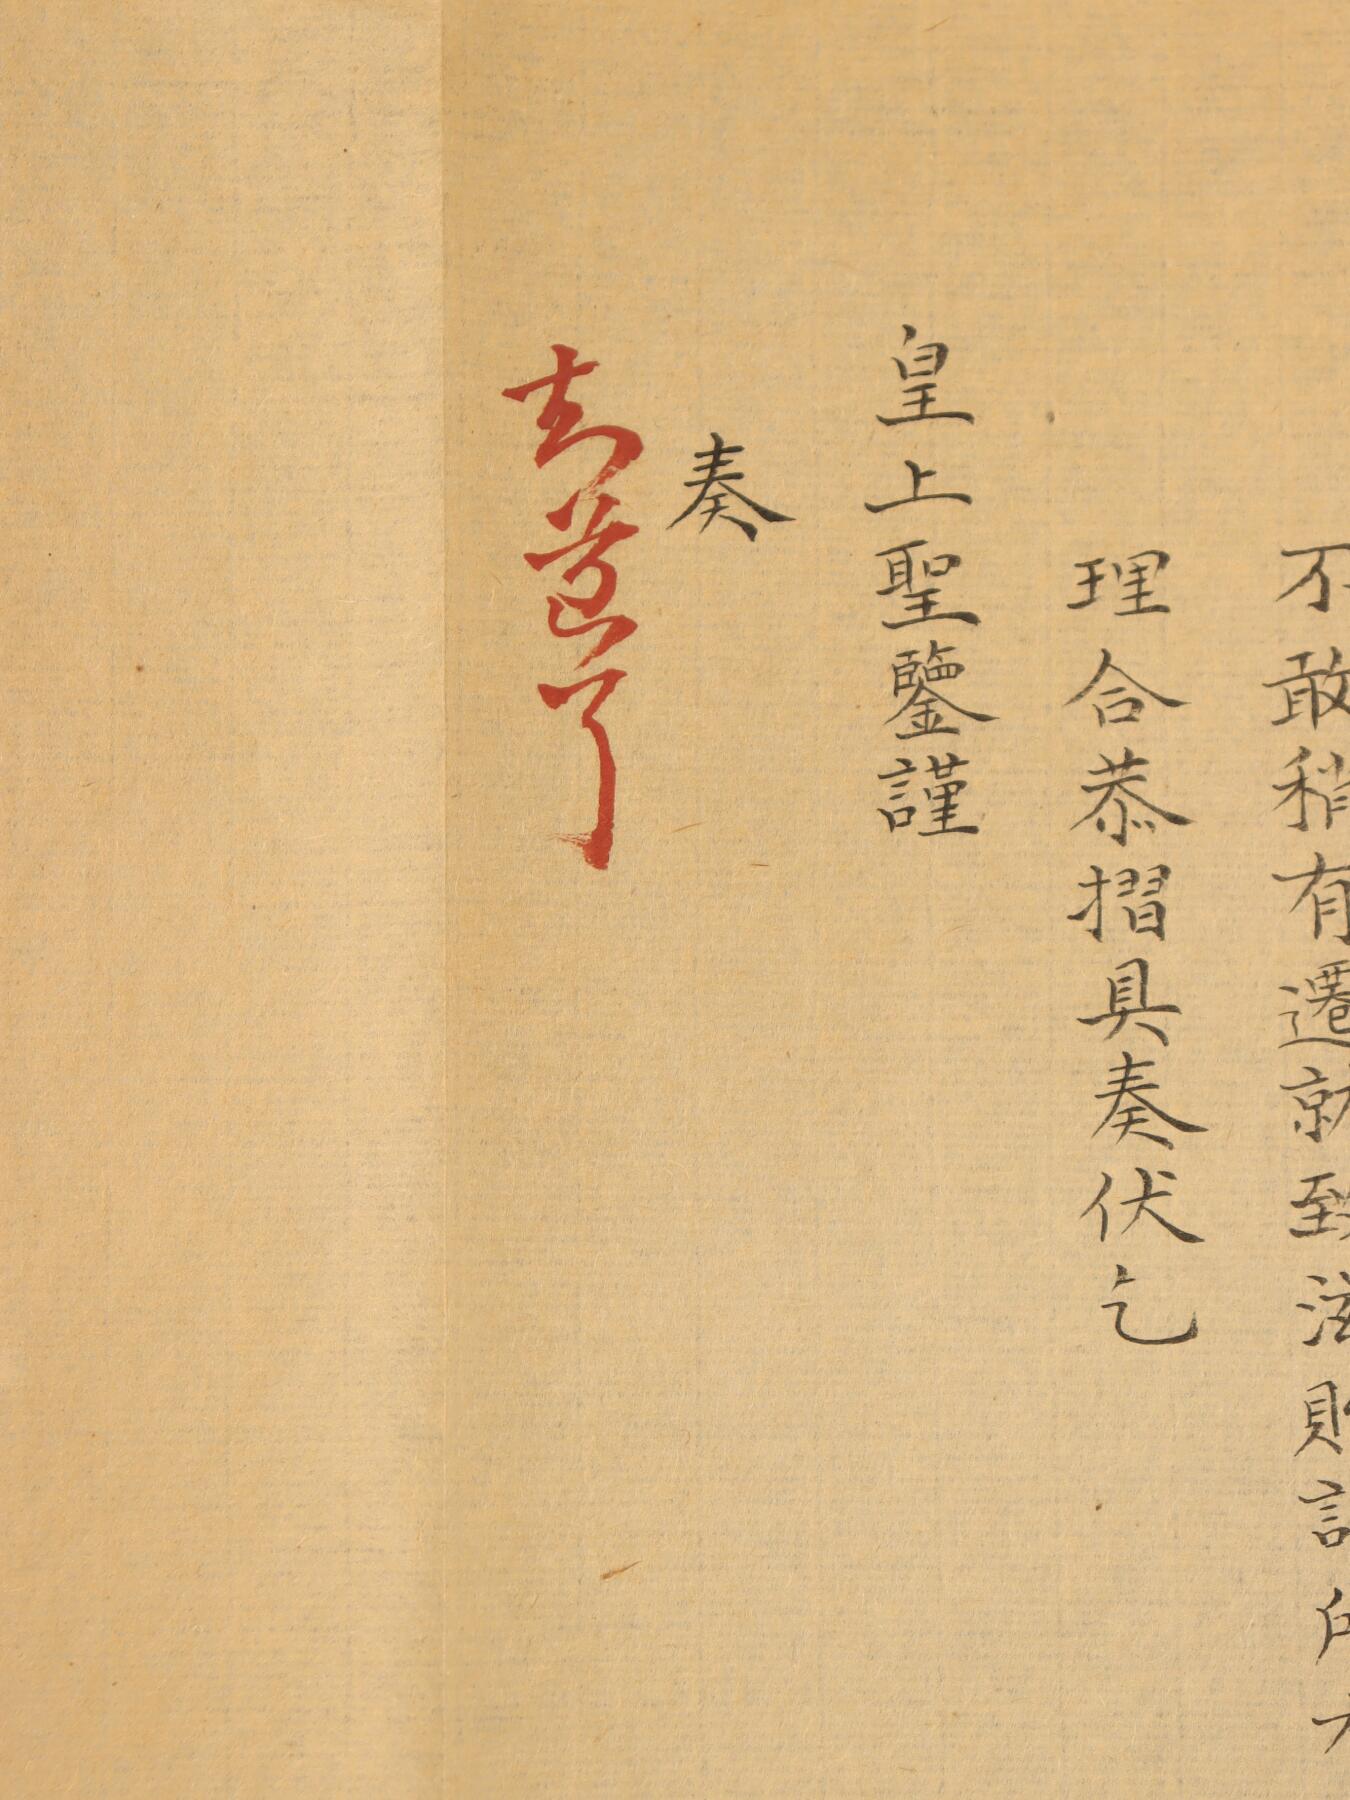 不敢稍有遷就致滋貽誤所有
理合恭摺具奏伏乞
皇上聖鑒謹
奏
知道了